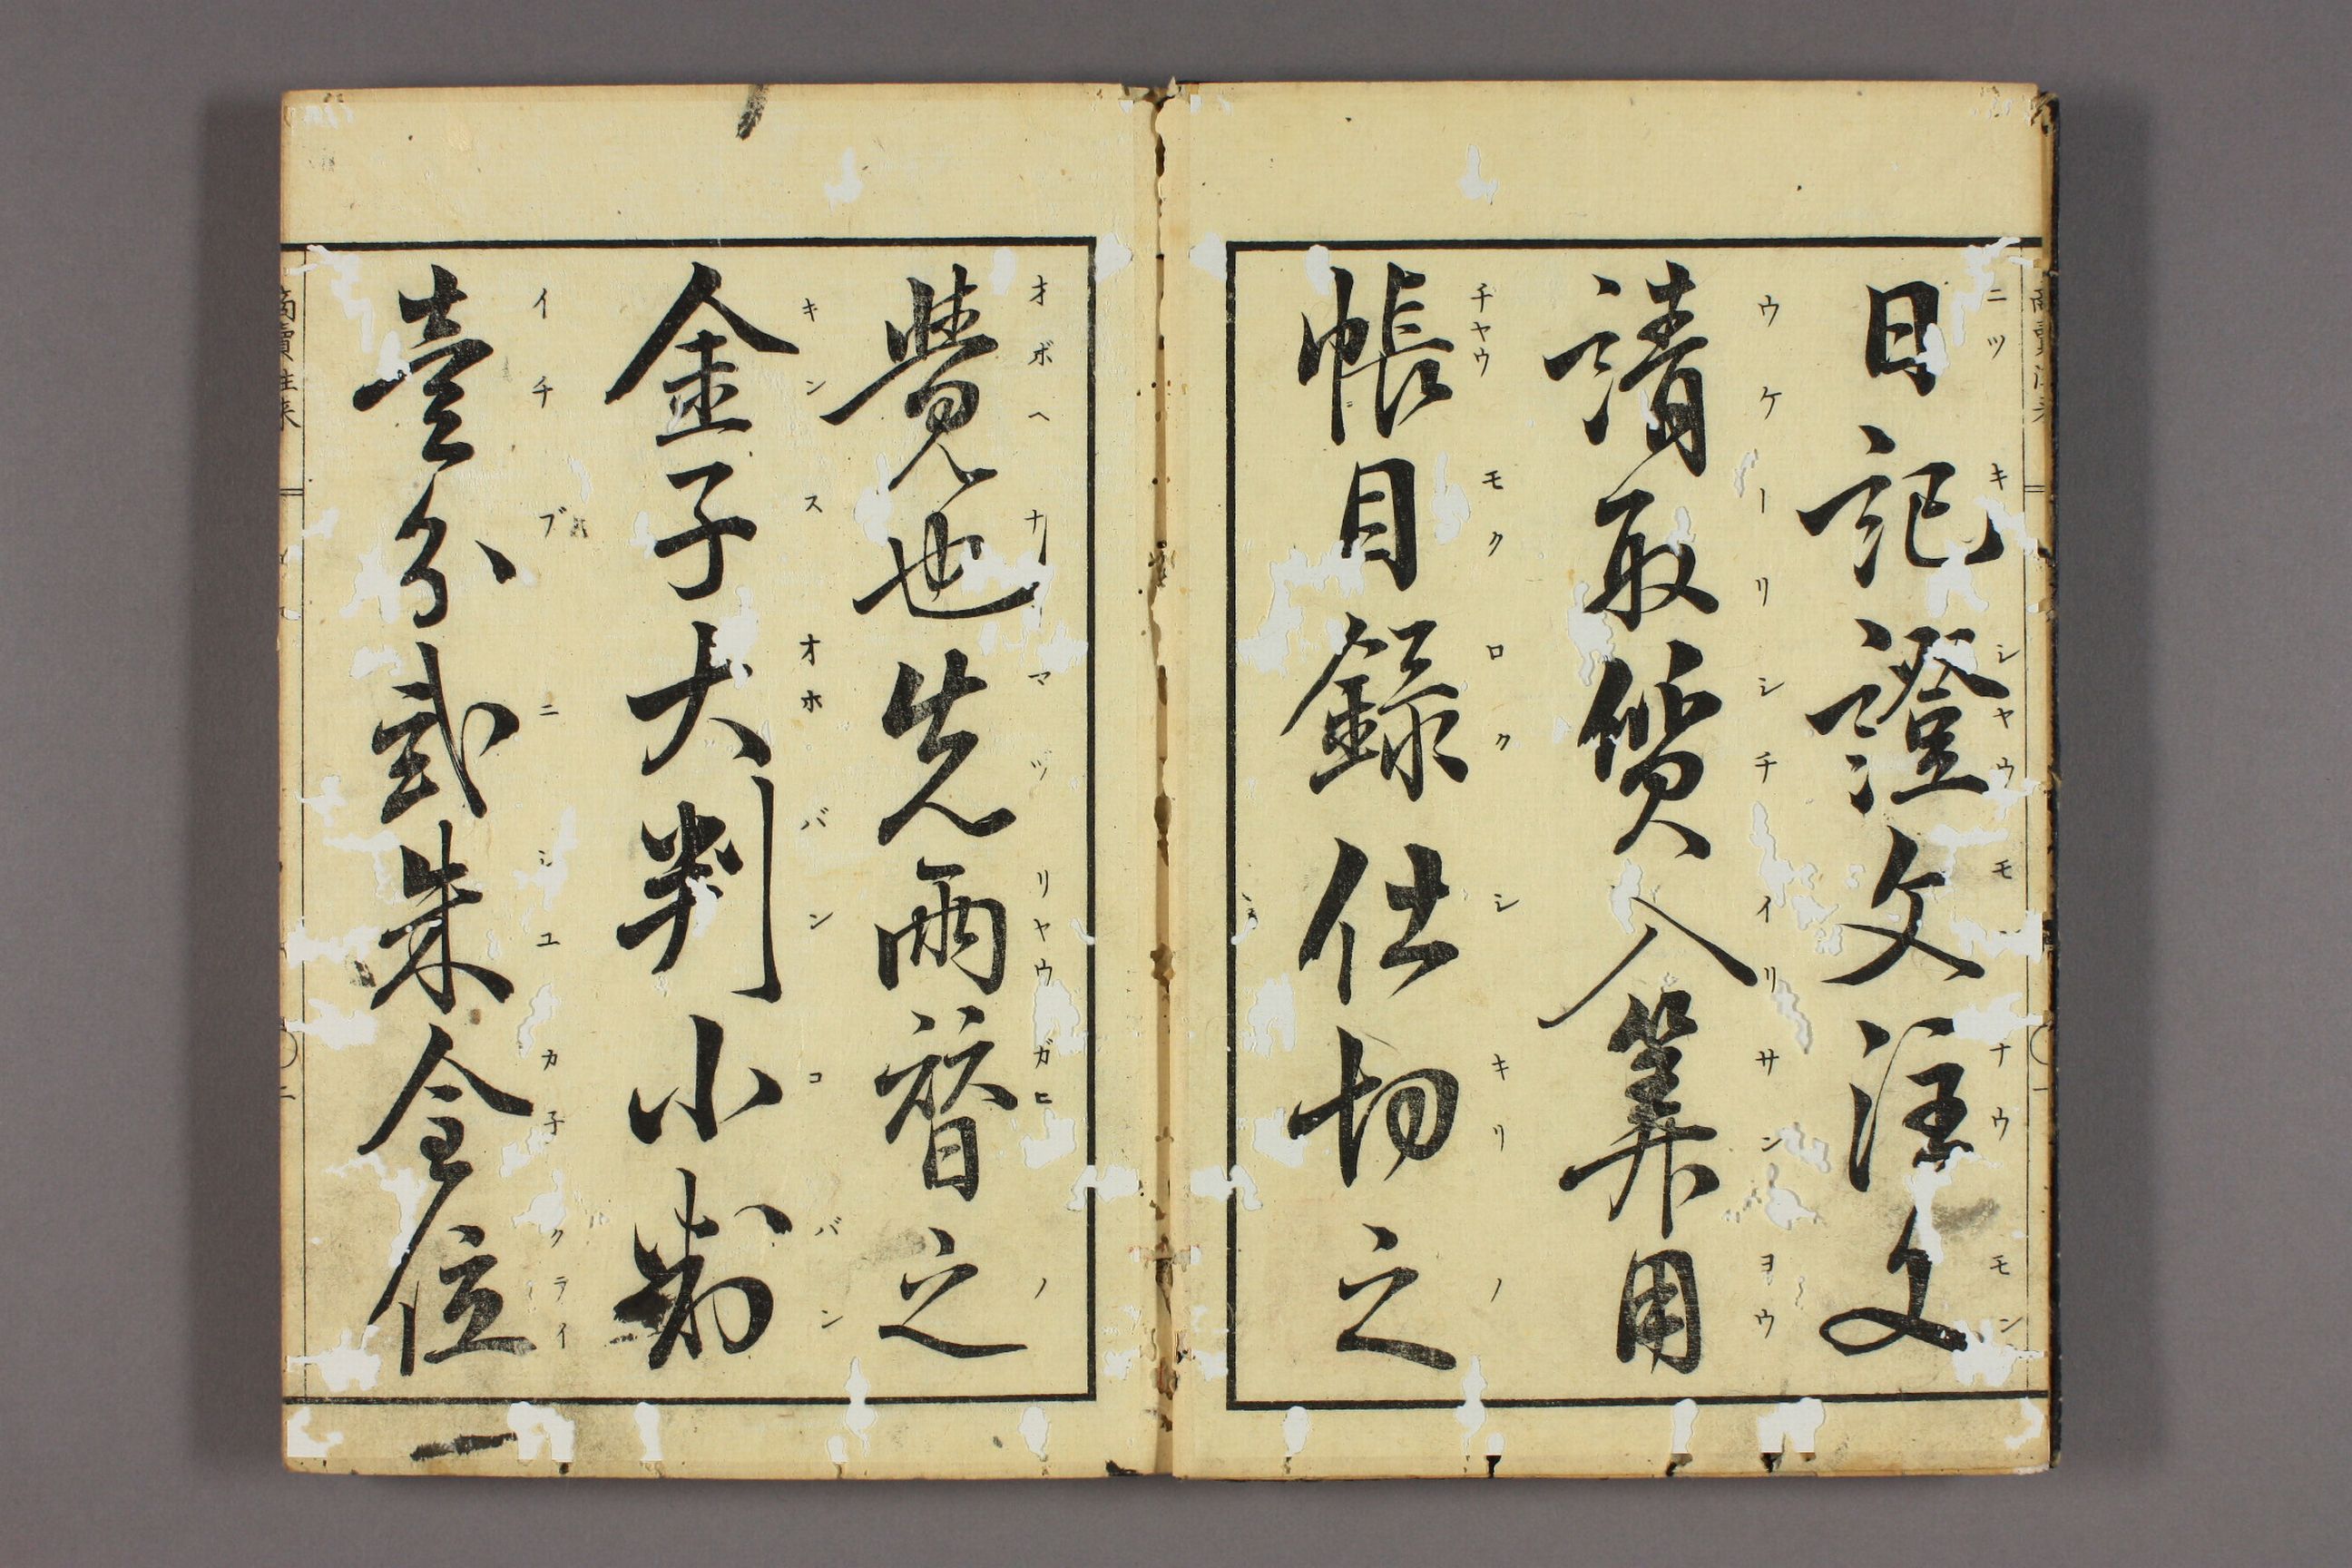 日記證文注文
ニツキシヤウモナウモン
請取質入筭用
ウケーリシチイリサンヨウ
帳目録仕切之
チヤウモクロクシキリノ
覺也先両替之
オボヘナマヅリヤウガヒノ
金子大判小判
キンスオホバンコバン
壹分貳朱金位
イチブニシユカ子クライ
商賣往来